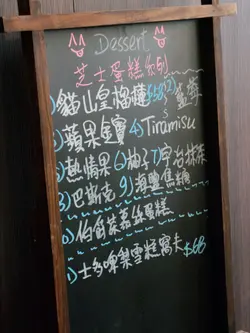 Dessert
芝士蛋糕系列
1)貓山皇榴槤$58 2)藍莓
3)蘋果金寶 4)Tiramisu
5)熱情果 6)柚子 7)宇治抹茶
8)巴斯克 9)海鹽焦糖
10)伯爵茶慕絲蛋糕
11)士多啤梨雪糕窩夫 $68